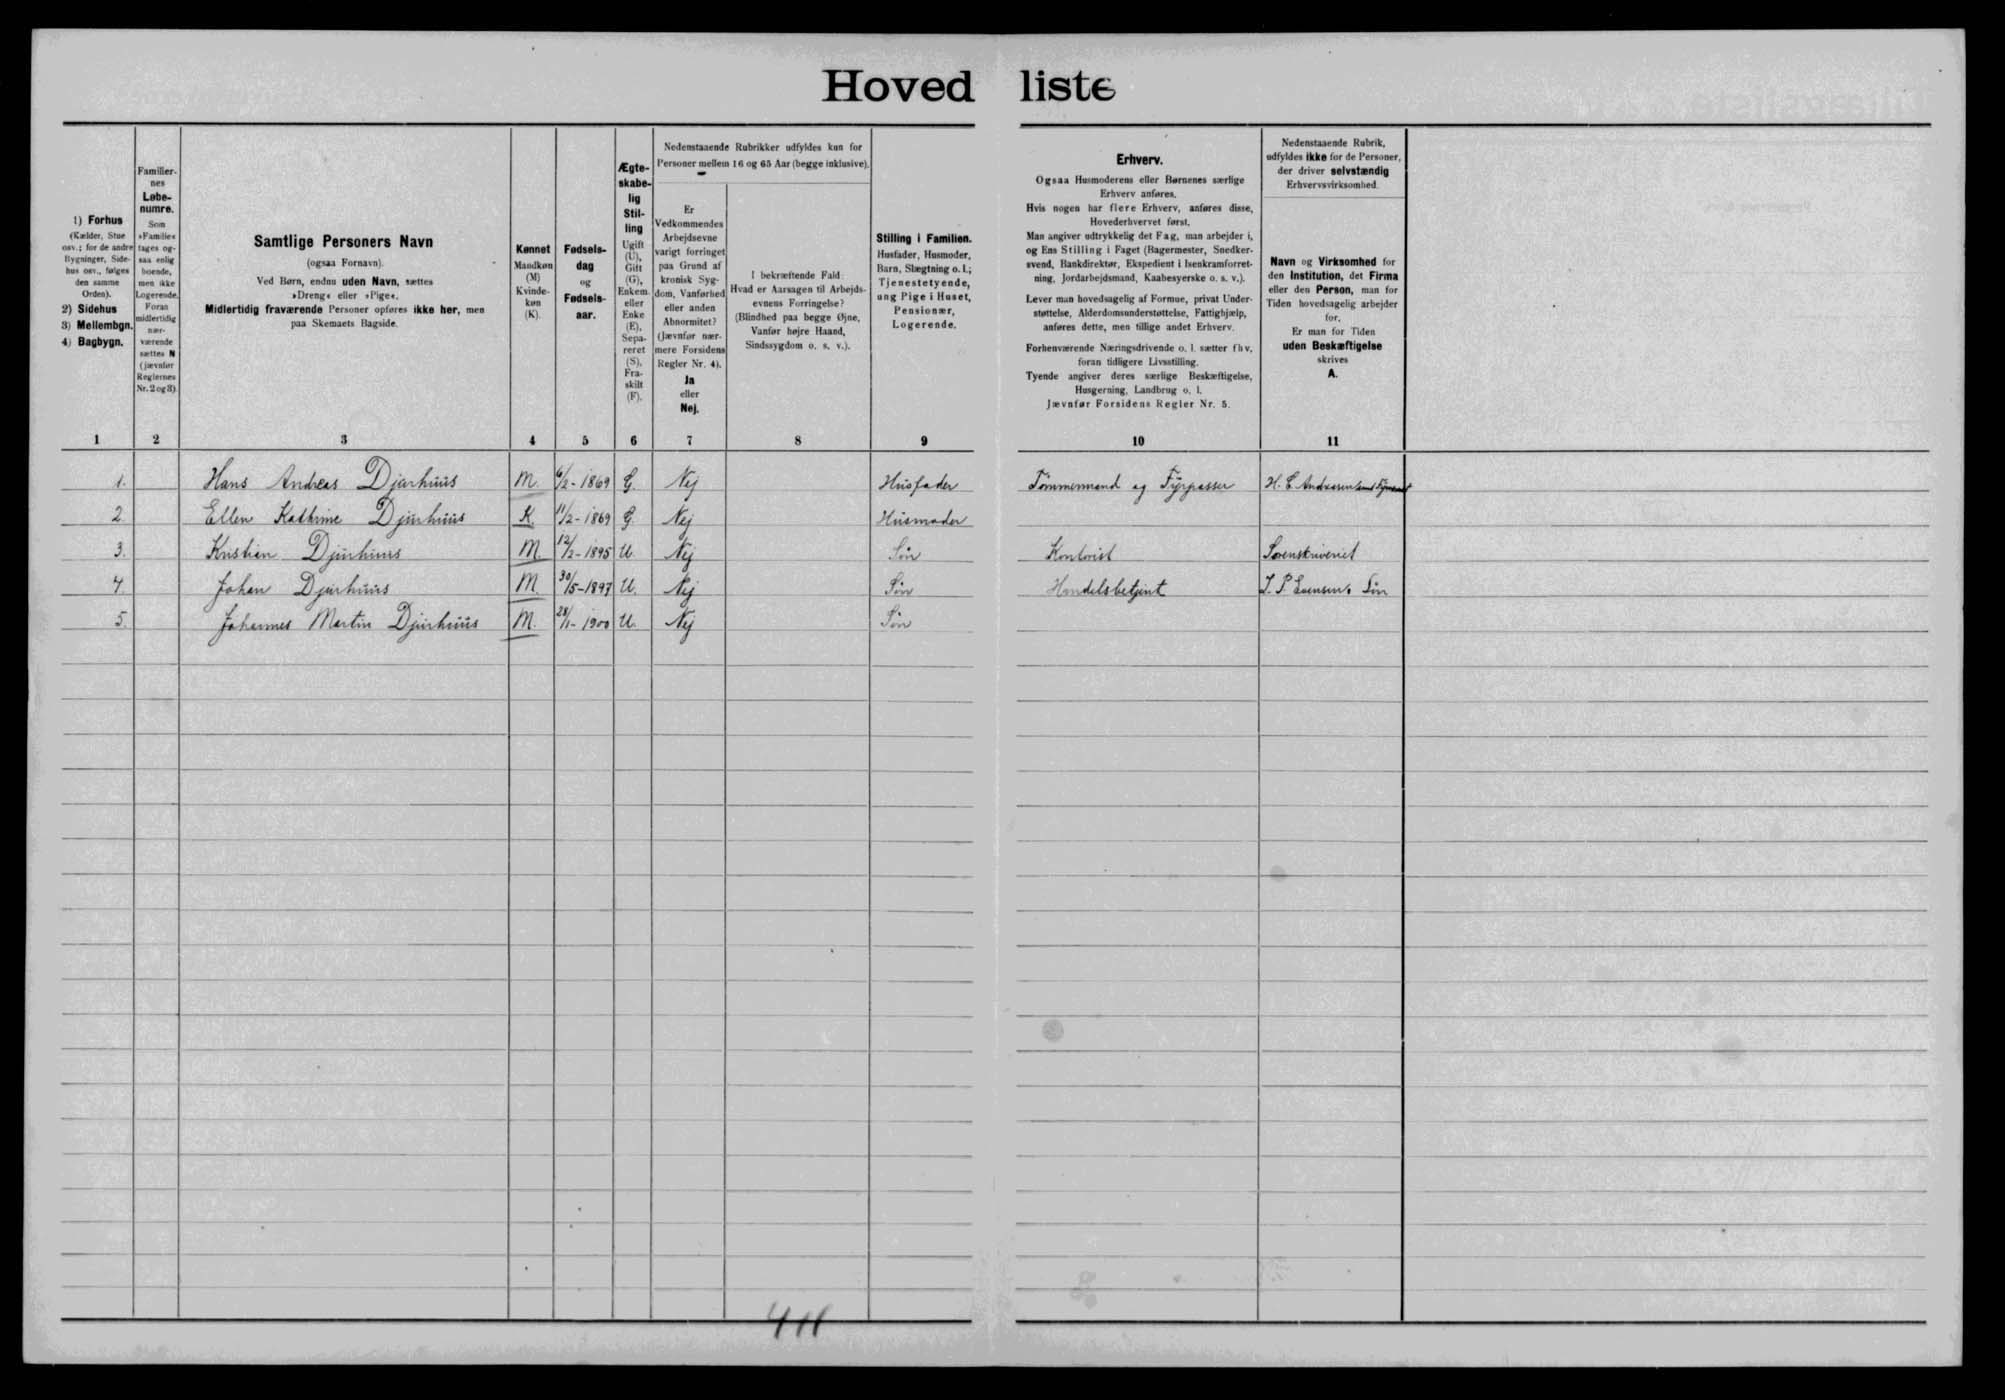 Hovedliste
1) Forhus
(Kælder, Stue
osv.; for de andre
Bygninger, Side-
hus osv., følges
den samme
Orden).
2) Sidehus
3) Mellembgn.
4) Bagbygn.
Familier-
nes
Løbe-
numre.
Som
»Familie«
tages og-
saa enlig
boende,
men ikke
Logerende.
Foran
midlertidig
nær-
værende
sættes N
(jævnfør
Reglernes
Nr. 2 og 3).
Samtlige Personers Navn
(ogsaa Fornavn).
Ved Børn, endnu uden Navn, sættes
»Dreng« eller »Pige«.
Midlertidig fraværende Personer opføres ikke her, men
paa Skemaets Bagside.
Kønnet
Mandkøn
(M)
Kvinde-
køn
(K).
Fødsels-
dag
og
Fødsels-
aar.
Ægte-
skabe-
lig
Stil-
ling
Ugift
(U),
Gift
(G),
Enkem.
eller
Enke
(E),
Sepa-
reret
(S),
Fra-
skilt
(F).
Nedenstaaende Rubrikker udfyldes kun for
Personer mellem 16 og 65 Aar (begge inklusive).
Er
Vedkommendes
Arbejdsevne
varigt forringet
paa Grund af
kronisk Syg-
dom, Vanførhed
eller anden
Abnormitet?
(Jævnfør nær-
mere Forsidens
Regler Nr. 4).
Ja
eller
Nej.
I bekræftende Fald:
Hvad er Aarsagen til Arbejds-
evnens Forringelse?
(Blindhed paa begge Øjne,
Vanfør højre Haand,
Sindssygdom o. s. v.).
Stilling i Familien.
Husfader, Husmoder,
Barn, Slægtning o. l.;
Tjenestetyende,
ung Pige i Huset,
Pensionær,
Logerende.
Erhverv.
Ogsaa Husmoderens eller Børnenes særlige
Erhverv anføres.
Hvis nogen har flere Erhverv, anføres disse,
Hovederhvervet først.
Man angiver udtrykkelig det Fag, man arbejder i,
og Ens Stilling i Faget (Bagermester, Snedker-
svend, Bankdirektør, Ekspedient i Isenkramforret-
ning, Jordarbejdsmand, Kaabesyerske o. s. v.).
Lever man hovedsagelig af Formue, privat Under-
støttelse, Alderdomsunderstøttelse, Fattighjælp,
anføres dette, men tillige andet Erhverv.
Forhenværende Næringsdrivende o. l. sætter fhv.
foran tidligere Livsstilling.
Tyende angiver deres særlige Beskæftigelse,
Husgerning, Landbrug o. l.
Jævnfør Forsidens Regler Nr. 5.
Nedenstaaende Rubrik,
udfyldes ikke for de Personer,
der driver selvstændig
Erhvervsvirksomhed.
Navn og Virksomhed for
den Institution, det Firma
eller den Person, man for
Tiden hovedsagelig arbejder
for.
Er man for Tiden
uden Beskæftigelse
skrives
A.
1 2 3 4 5 6 7 8 9 10 11
1. Hans Andreas Djurhuus M. 6/2-1869 G. Nej Husfader Tømmermand og Fyrpasser H. C. Andreasen
2. Ellen Kathrine Djurhuus K. 11/2-1869 G. Nej Husmoder
3. Kristian Djurhuus M. 12/2-1895 U. Nej Søn Kontorist Sorenskriveriet
4. Johan Djurhuus M. 30/5-1897 U. Nej Søn Handelsbetjent Evensens Søn
5. Johannes Martin Djurhuus M. 28/1-1900 U. Nej Søn